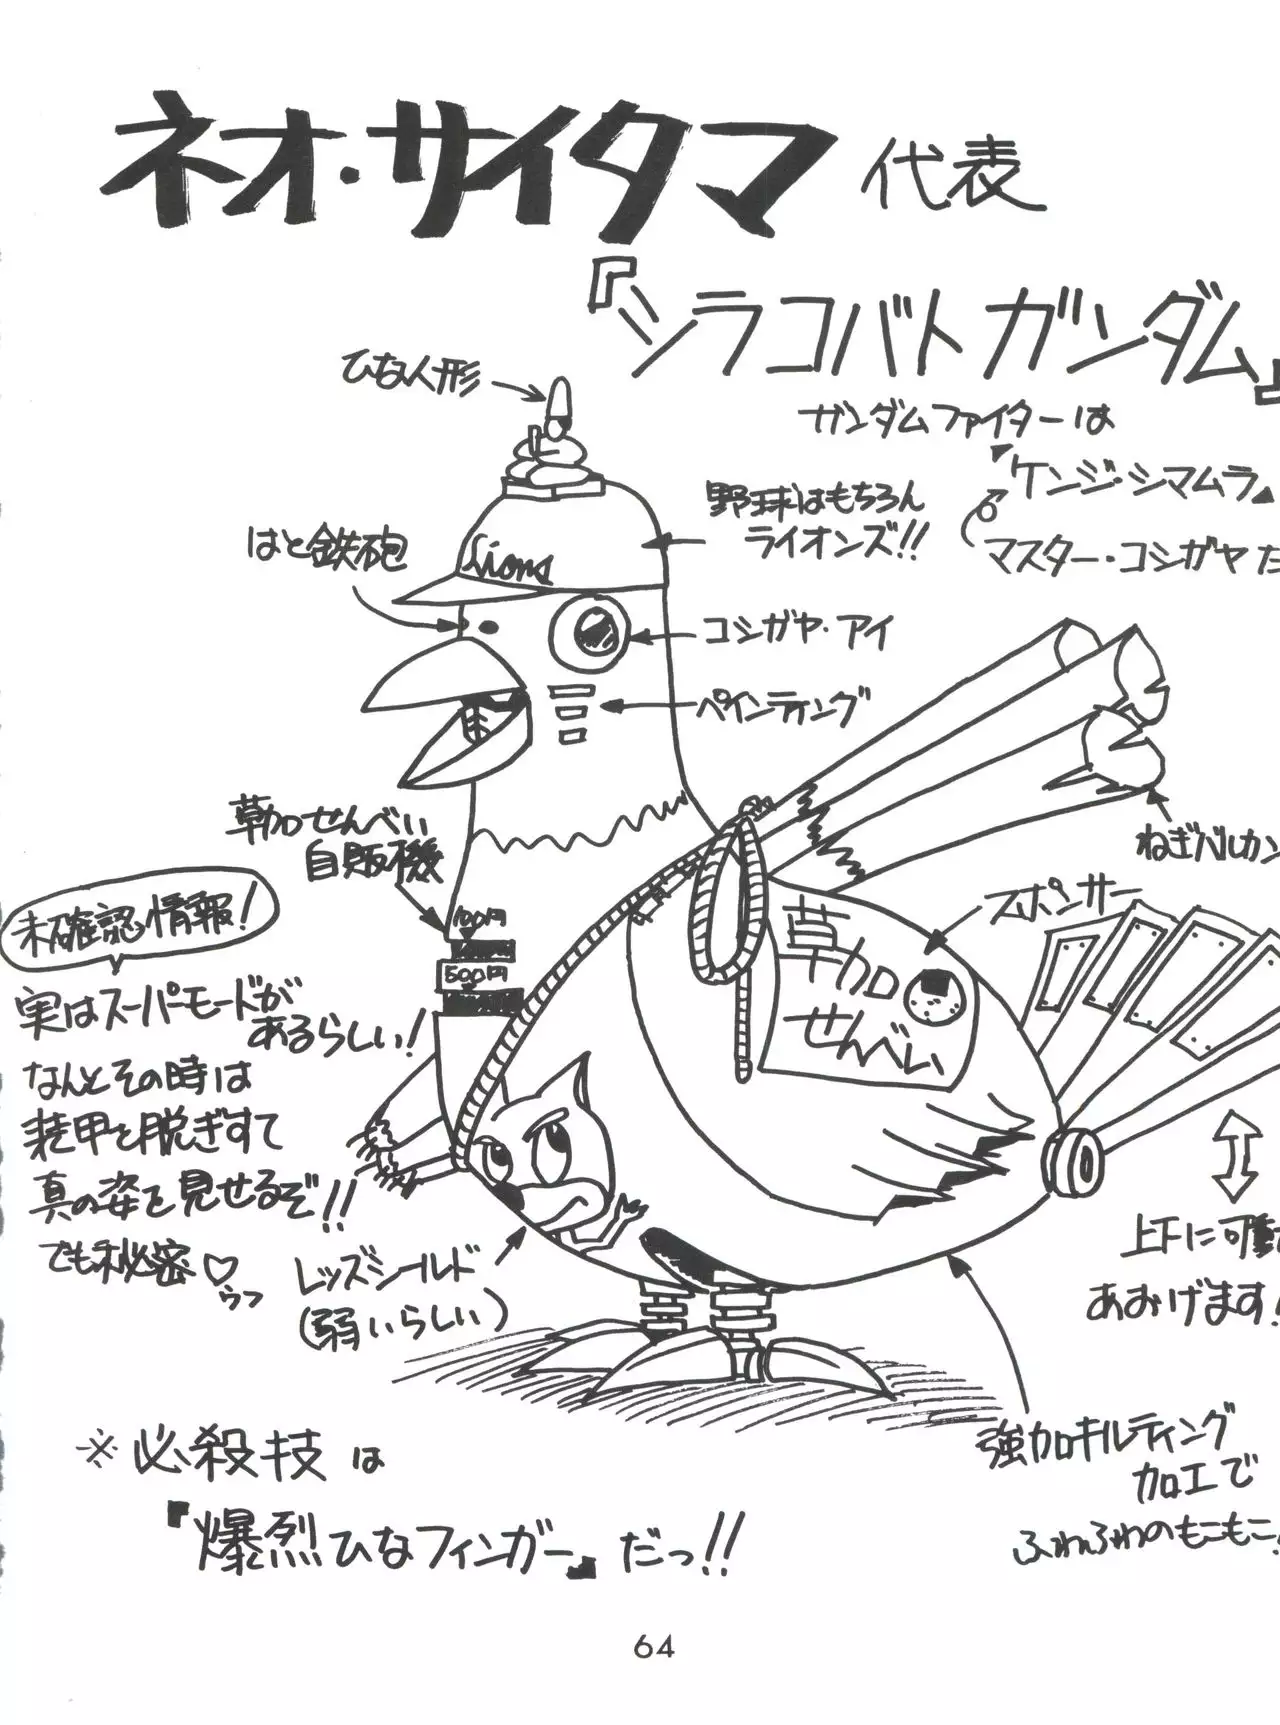 ネオ・サイタマ代表
『シラコバトガンダム』
ひな人形
ガンダムファイターは
『ケンジ・シマムラ』
野球はもちろん
ライオンズ!!
マスター・コシガヤだ
はと鉄砲
Lions
コシガヤ・アイ
ペインティング
草加せんべい
自販機
ねぎバルカン
スポンサー
未確認情報!
100円
500円
草加
せんべい
実はスーパーモードが
あるらしい!
なんとその時は
装甲を脱ぎすて
真の姿を見せるぞ!!
でも秘密♡
ウフ
レッズシールド
(弱いらしい)
上下に可動
あおげます!
強加キルティング
加工で
ふわふわのもこもこ!
※必殺技は
『爆烈ひなフィンガー』だっ!!
64